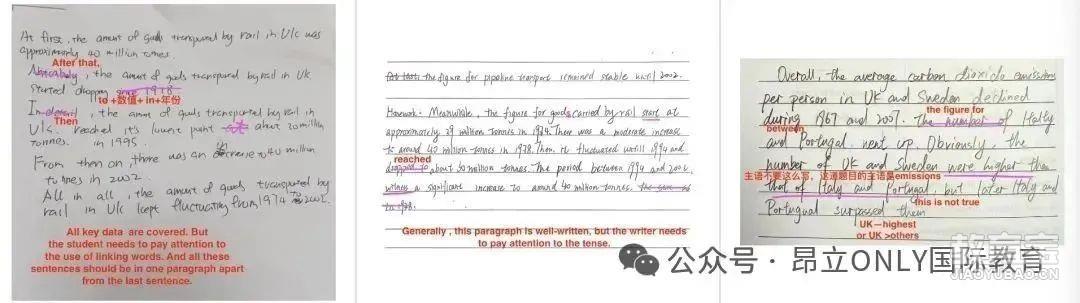 At first, the amount of goods transpored by rail in U/c was
approximately 40 million tonnes.
After that,
Noticebaly, the amount of goods transpored by rail in UK
started dropping since 1978
to +数值+ in+年份
In detail, the amount of goods transported by rail in
Then
U/c. reached it's lowest point at about 20 million
tonnes. in 1995.
From then on, there was an increase to 40 million
tonnes in 2002.
All in all, the amount of goods transported by
rail in U/c kept fluctuating from 1974 to 2002.
All key data are covered. But
the student needs to pay attention to
the use of linking words. And all these
sentences should be in one paragraph apart
from the last sentence.
the figure for pipeline transport remained stable until 2002.
Homework: Meanwhile, the figure for goods carried by rail start at
approximately 39 million tonnes in 1974. There was a moderate increase
to around 40 million tonnes in 1978. Then, it fluctuated until 1994 and
reached
dropped to about 30 million tonnes. The period between 1994 and 2002
witness a significant increase to around 40 million tonnes.
Generally , this paragraph is well-written, but the writer needs
to pay attention to the tense.
Overall, the average carbon dioxide emissions
per person in UK and Sweden declined
the figure for
during 1967 and 2007. The number of Itally
between
and Portugal went up. Obviously, the
number of UK and Sweden were higher than
主语不要这么写，这道题目的主语是emissions
that of Italy and Portugal, but later Italy and
this is not true
Portugual surpassed them
UK—highest
or UK >others
公众号 · 昂立ONLY国际教育
教育宝
JIAOYUBAO.CN